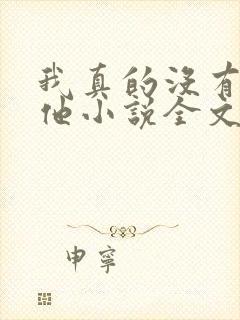 我真的没有
他小说全文
申宁